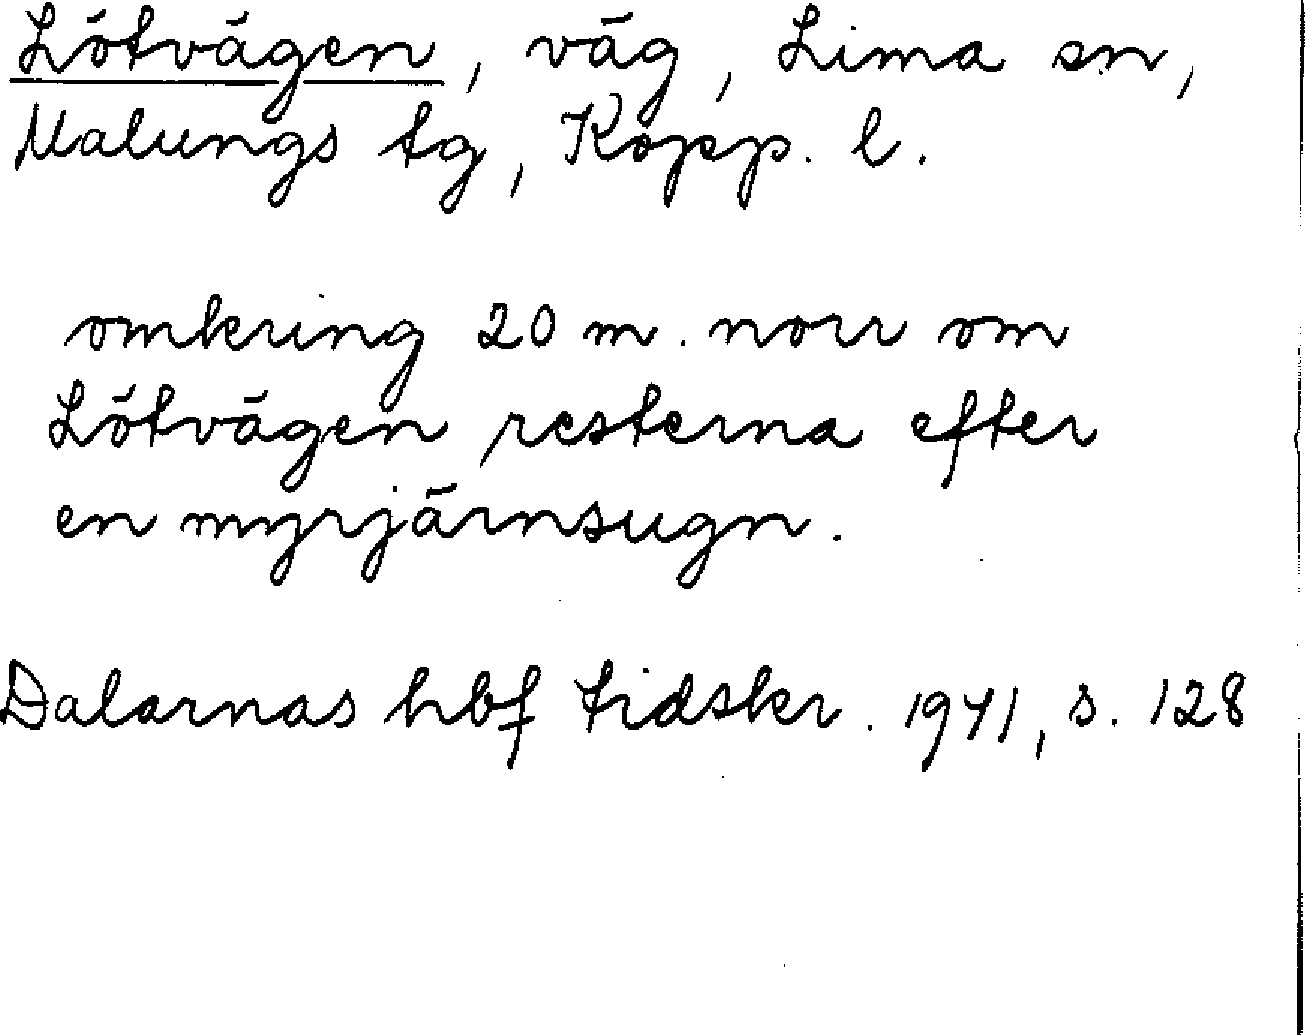 Lötvägen, väg, Lima sn,
Malungs tg, Kopp. l.
omkring 20 m. norr om
Lötvägen resterna efter
en myrjärnsugn.
Dalarnas hbf tidskr. 1941, s. 128